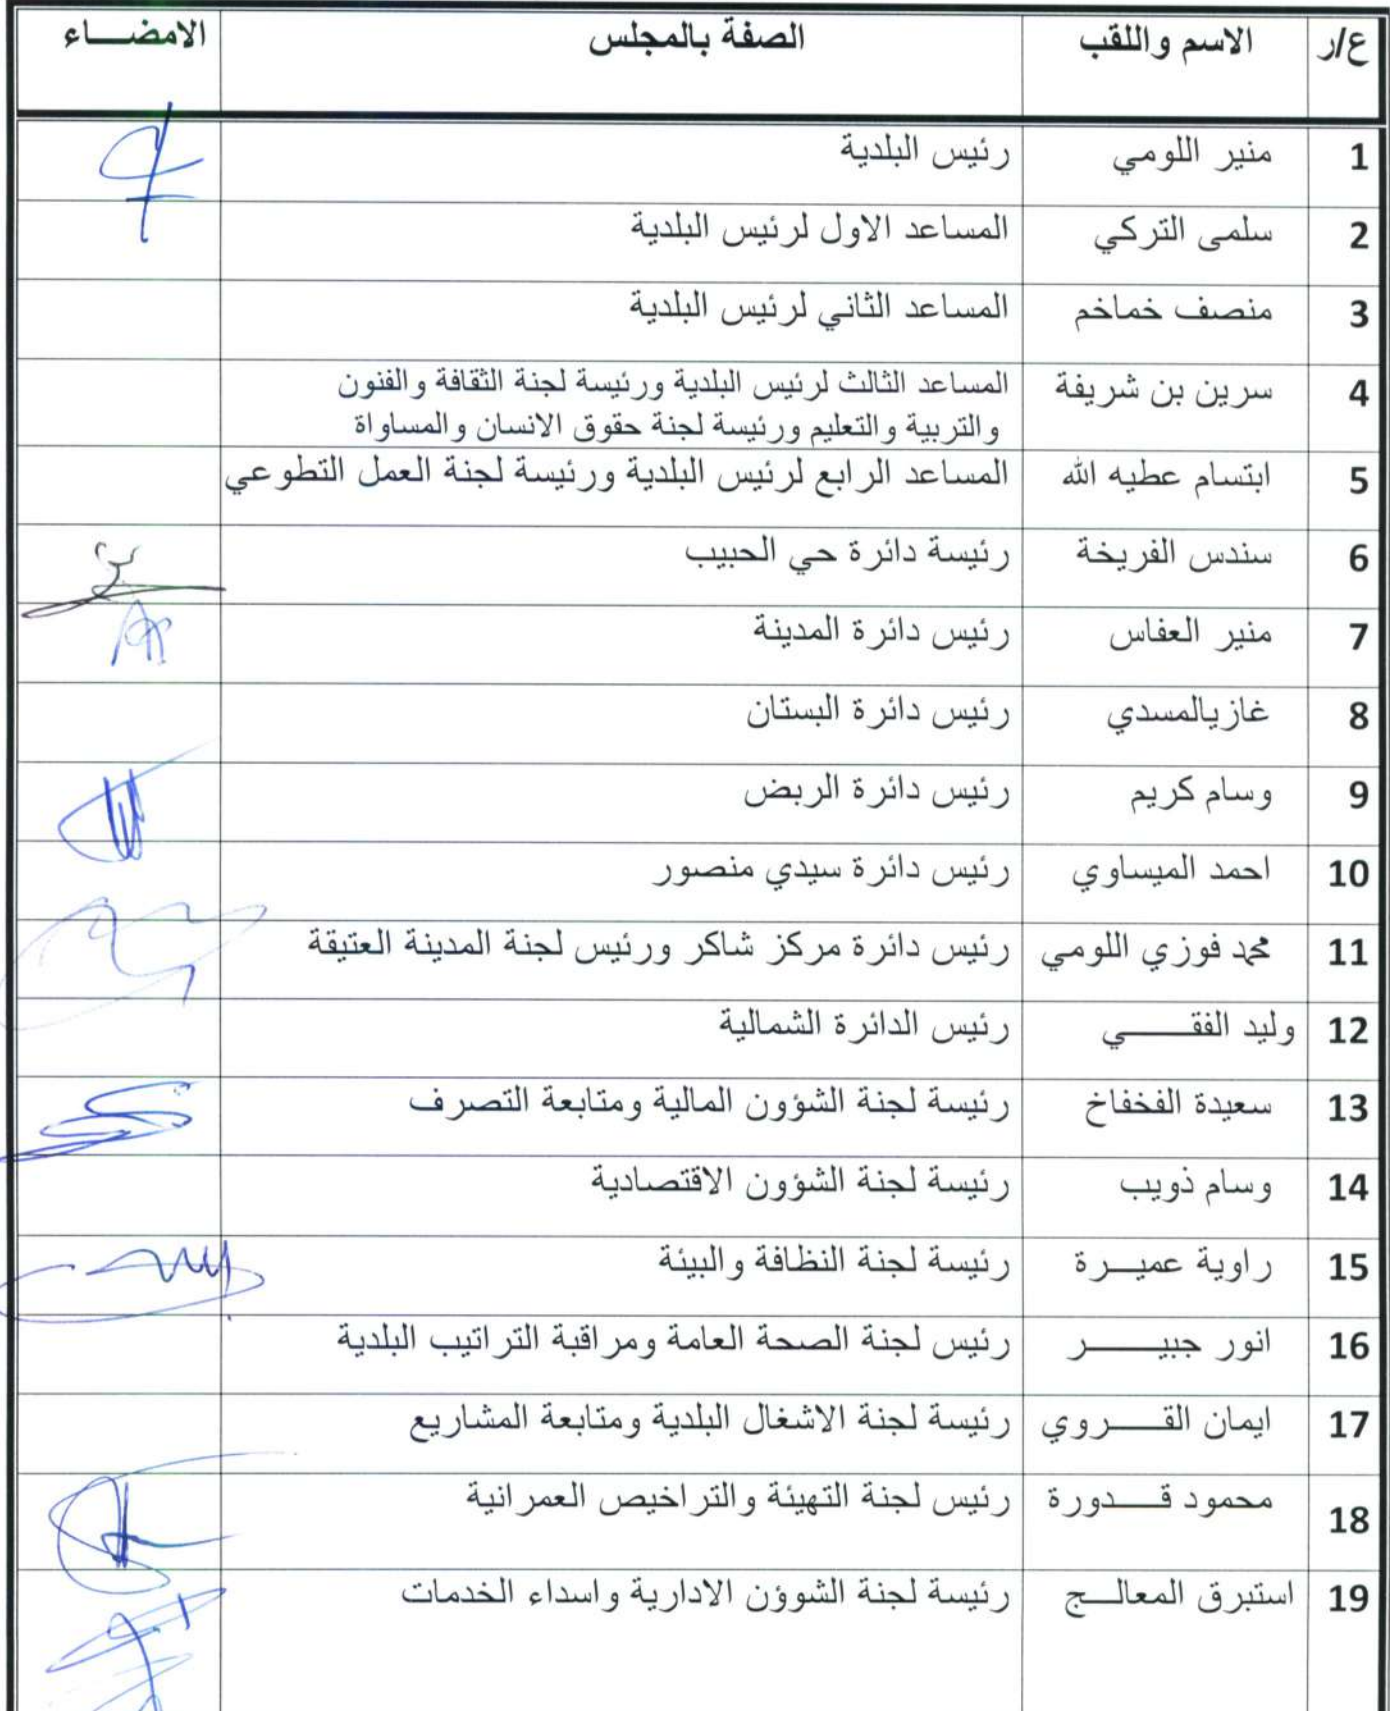 ع/ر الاسم واللقب الصفة بالمجلس الامضـــاء
1 منير اللومي رئيس البلدية
2 سلمى التركي المساعد الاول لرئيس البلدية
3 منصف خماخم المساعد الثاني لرئيس البلدية
4 سرين بن شريفة المساعد الثالث لرئيس البلدية ورئيسة لجنة الثقافة والفنون
والتربية والتعليم ورئيسة لجنة حقوق الانسان والمساواة
5 ابتسام عطيه الله المساعد الرابع لرئيس البلدية ورئيسة لجنة العمل التطوعي
6 سندس الفريخة رئيسة دائرة حي الحبيب
7 منير العفاس رئيس دائرة المدينة
8 غازيالمسدي رئيس دائرة البستان
9 وسام كريم رئيس دائرة الربض
10 احمد الميساوي رئيس دائرة سيدي منصور
11 محمد فوزي اللومي رئيس دائرة مركز شاكر ورئيس لجنة المدينة العتيقة
12 وليد الفقـــــي رئيس الدائرة الشمالية
13 سعيدة الفخفاخ رئيسة لجنة الشؤون المالية ومتابعة التصرف
14 وسام ذويب رئيسة لجنة الشؤون الاقتصادية
15 راوية عميـــرة رئيسة لجنة النظافة والبيئة
16 انور جبيـــــر رئيس لجنة الصحة العامة ومراقبة التراتيب البلدية
17 ايمان القـــــروي رئيسة لجنة الاشغال البلدية ومتابعة المشاريع
18 محمود قــــدورة رئيس لجنة التهيئة والتراخيص العمرانية
19 استبرق المعالـــج رئيسة لجنة الشوؤن الادارية واسداء الخدمات